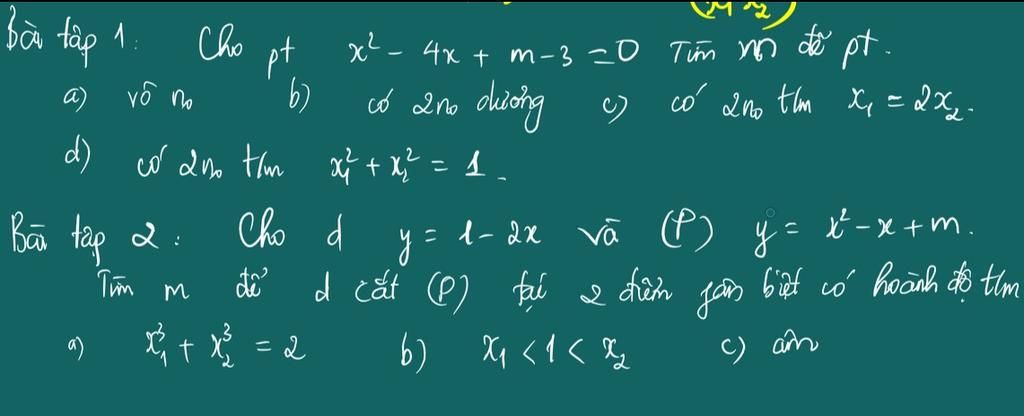 (x1 x2)
Bài tập 1: Cho pt x² - 4x + m - 3 = 0 Tìm m để pt.
a) vô no b) có 2no dương c) có 2no tlm x₁ = 2x₂.
d) có 2no tlm x₁² + x₂² = 1.
Bài tập 2: Cho d y = 1 - 2x và (P) y = x² - x + m.
Tìm m để d cắt (P) tại 2 điểm fân biệt có hoành độ tlm
a) x₁³ + x₂³ = 2 b) x₁ < 1 < x₂ c) âm